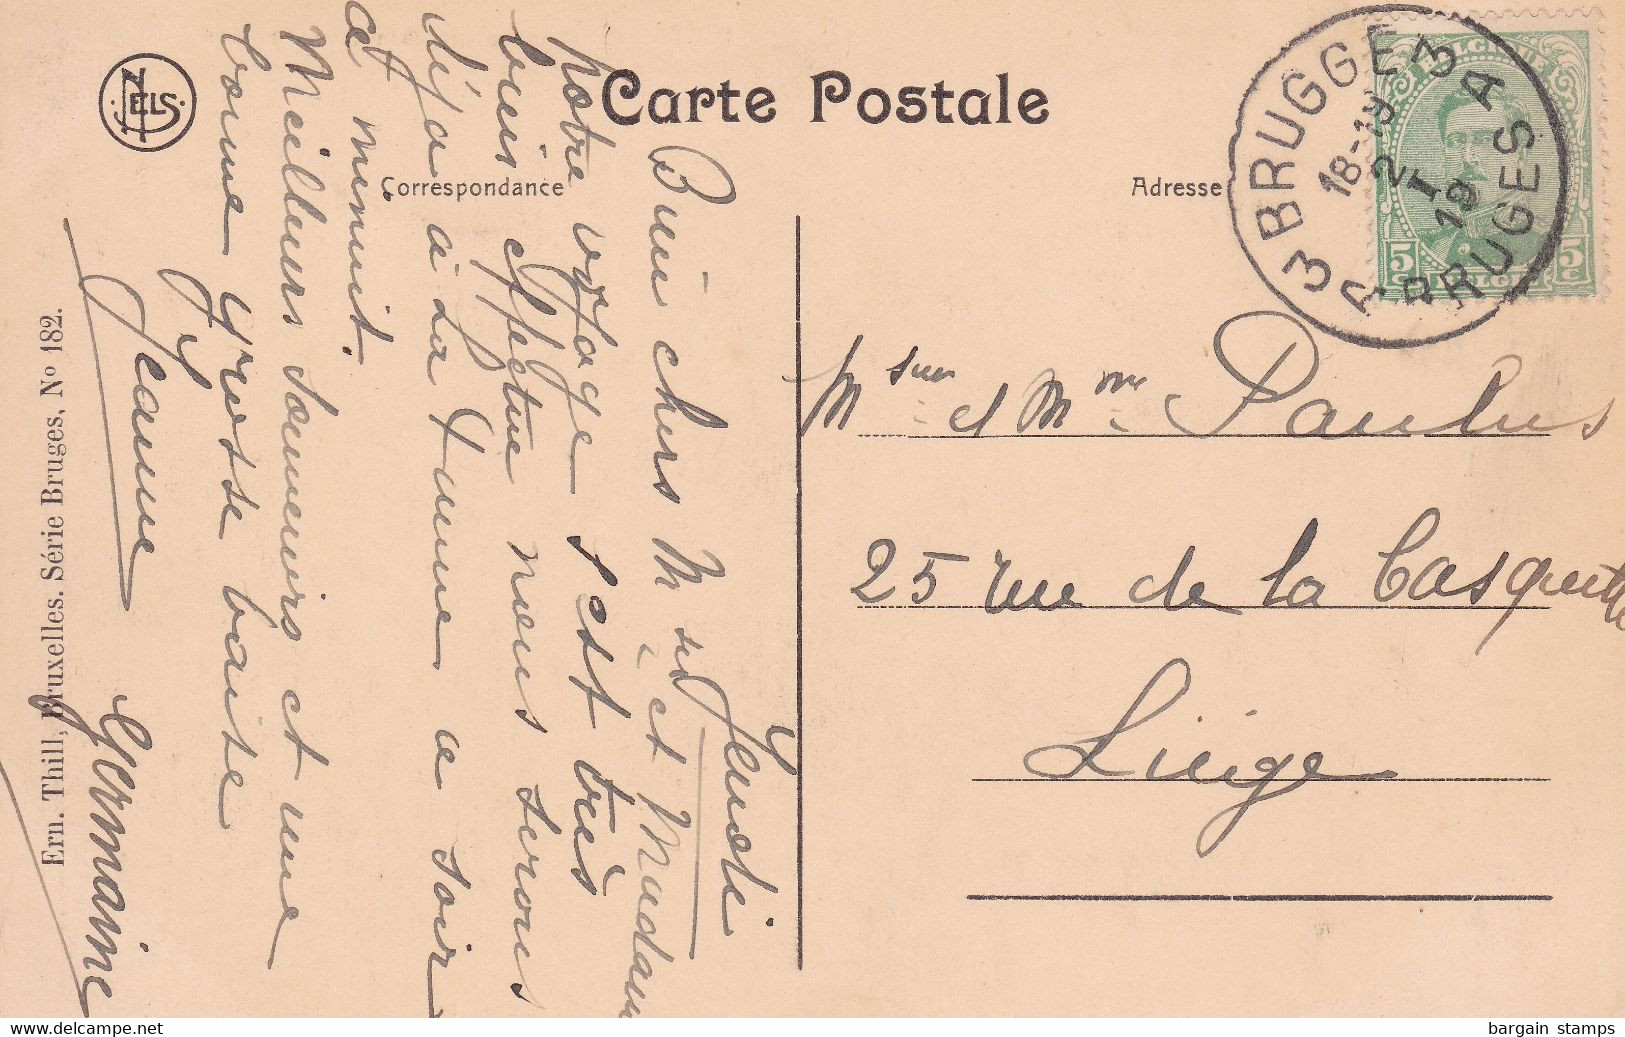 NELS
Carte Postale
Correspondance
Adresse
3 BRUGGE 3
18-19
2 I
19
A BRUGES A
BELGIQUE
5c 5c
BELGIË
Jeudi
Bien chers Msieur et Madame
notre voyage s'est très
bien effectué nous serons
déjà à La Panne ce soir
à minuit.
Meilleurs souvenirs et une
bonne grosse baise
Jeanne
Germaine
Msieur et Mme Paulus
25 rue de la Casquette
Liége
Ern. Thill, Bruxelles. Série Bruges, No 182.
www.delcampe.net
bargain stamps